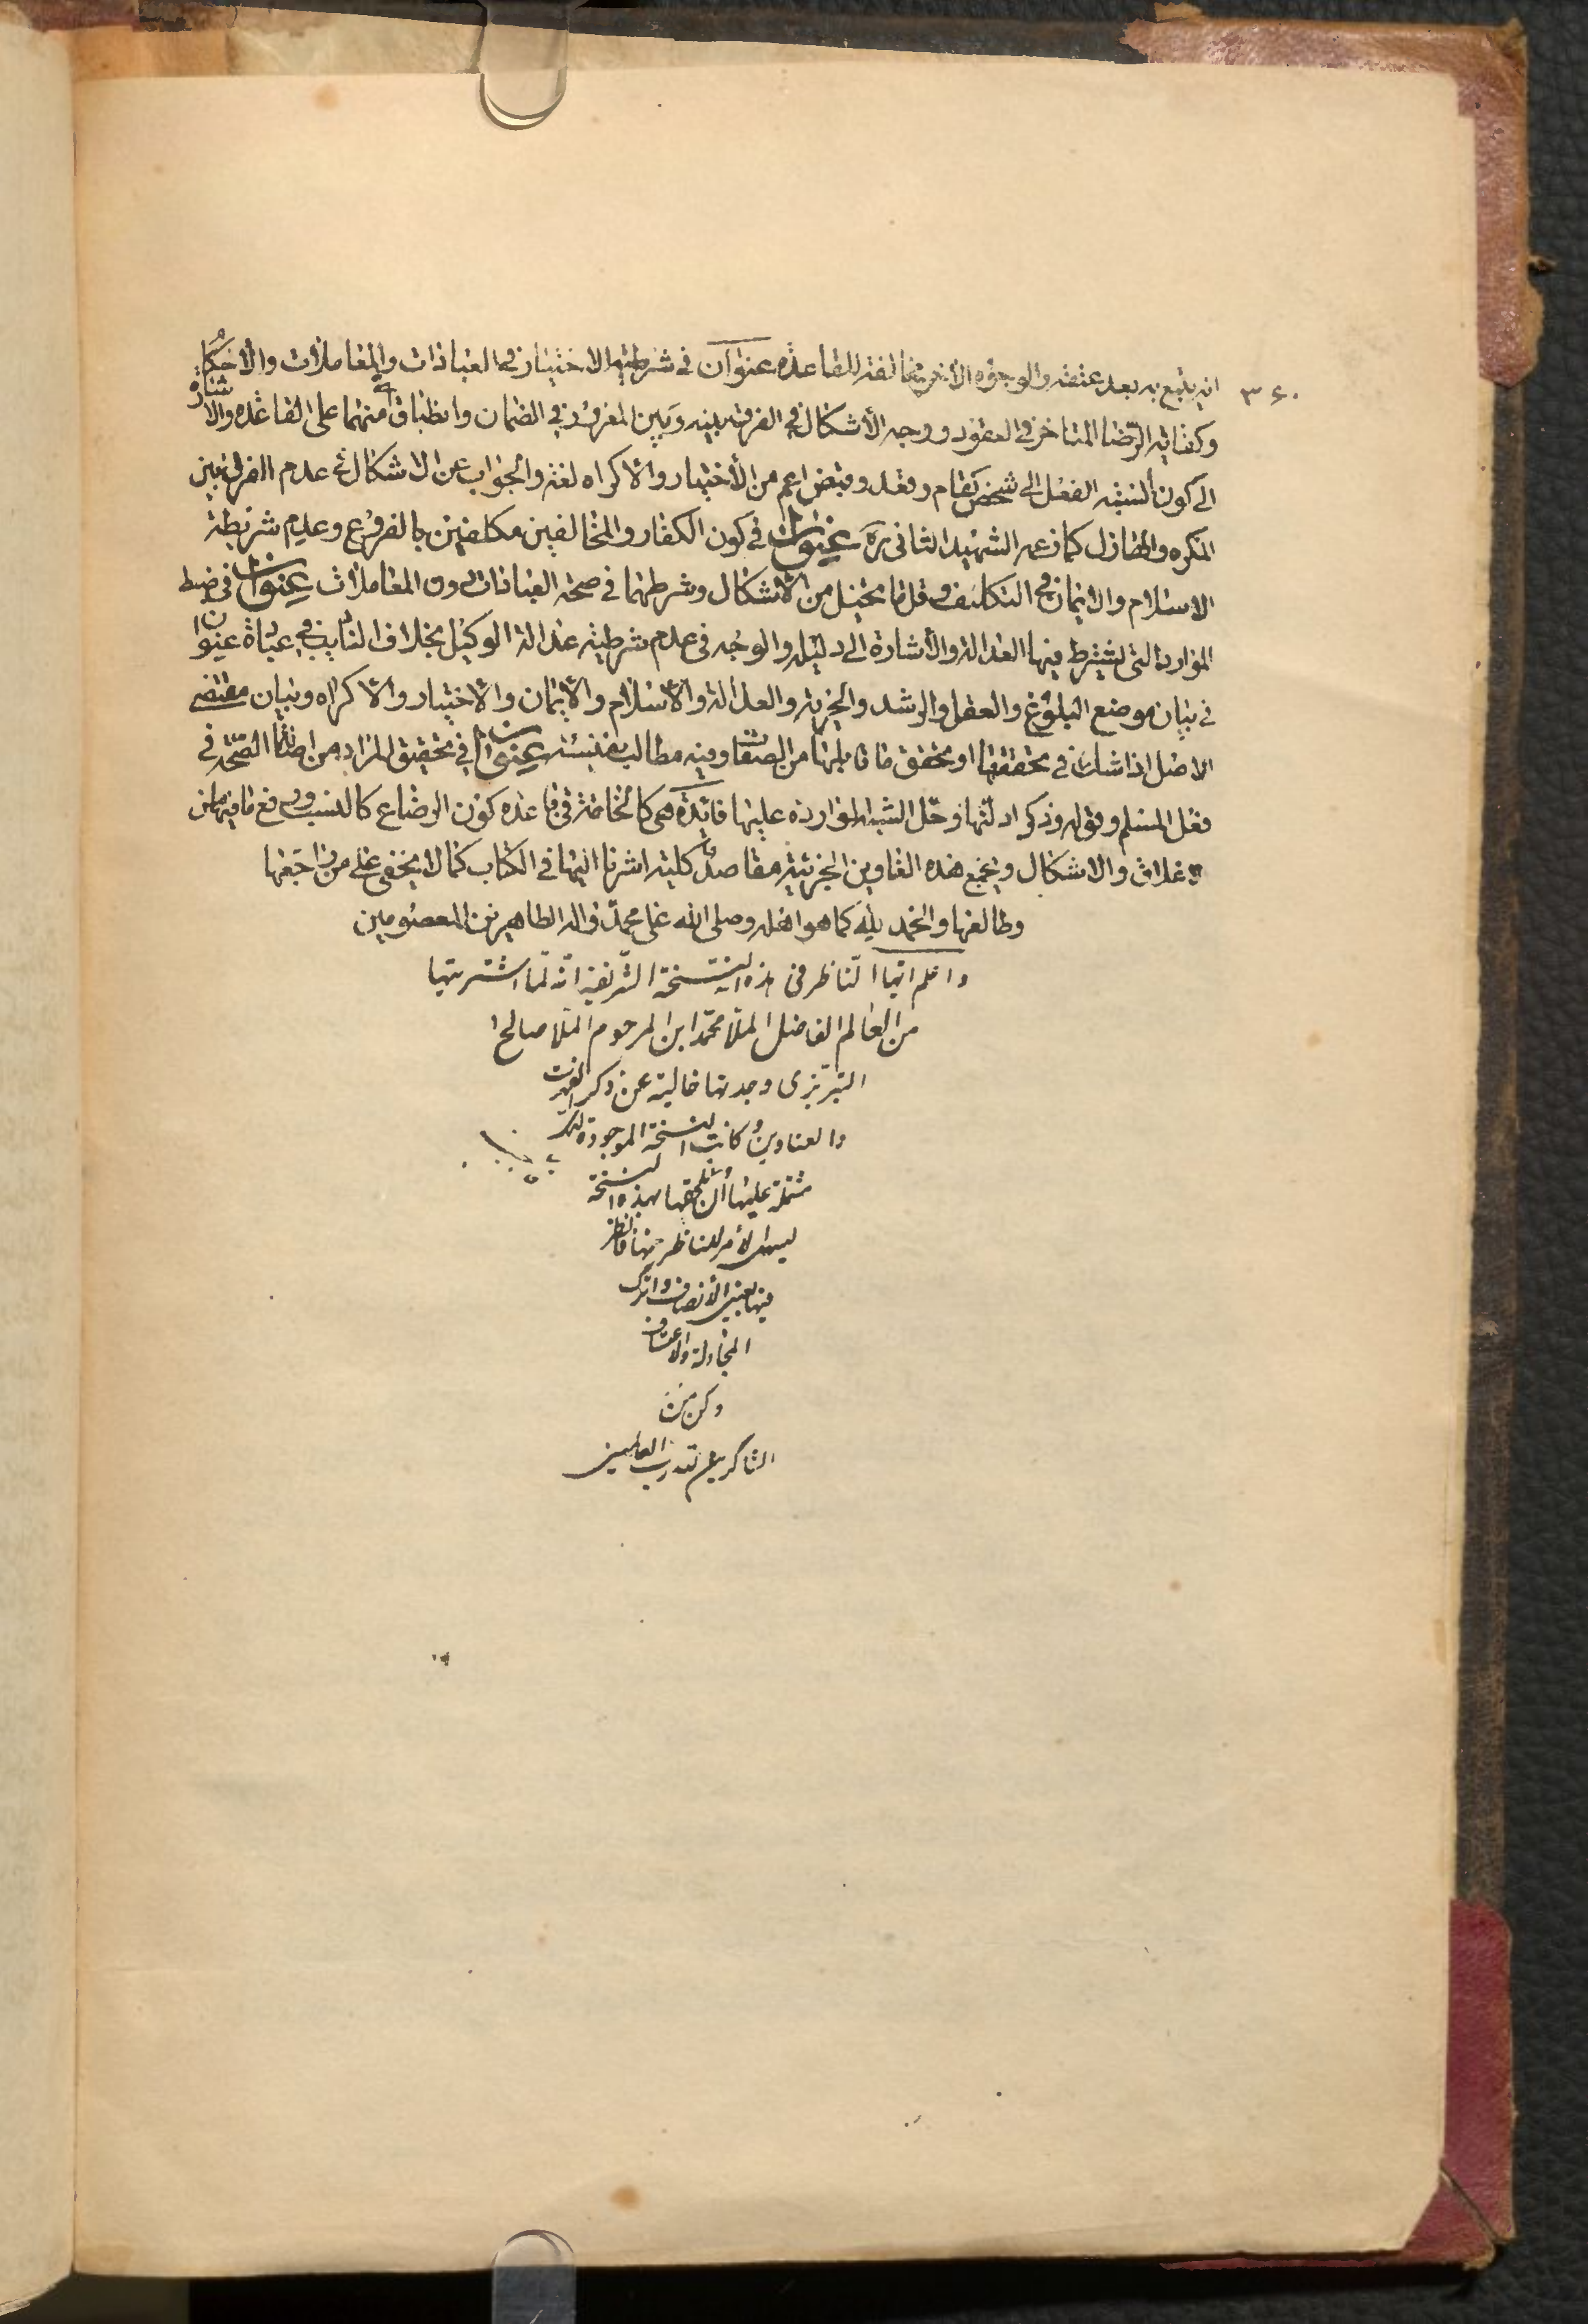 ۳۶۰
انه يتبع به بعد عتقه والوجوه الأخر مخالفة للقاعدة عنوان في شرطية الاختيار في العبادات والمعاملات والأحكام
وكفاية الرضا المتاخر في العقود ووجه الأشكال في الفرق بينه وبين المعروف في الضمان وانطباق منهما على القاعدة والاشارة
الى كون النسبة الفعل الى شخص كقام وقعد وقبض اعم من الأختيار والاكراه لغة والجواب عن الاشكال في عدم الفرق بين
المكره والهازل كما زعمه الشهيد الثاني ره عنوان في كون الكفار والمخالفين مكلفين بالفروع وعدم شرطية
الاسلام والايمان في التكليف وقل ما يخيل من الاشكال وشرطهما في صحة العبادات دون المعاملات عنوان في ضبط
الموارد التي يشترط فيها العدالة والأشارة الى دليله والوجه في عدم شرطية عدالة الوكيل بخلاف النايب في عبادة عنوان
في بيان موضع البلوغ والعقل والرشد والحرية والعدالة والاسلام والايمان والاختيار والاكراه وبيان مقتضى
الاصل اذا شك في تحققها او تحقق ما قابلها من الصفات وفيه مطالب نفيسة عنوان في تحقيق المراد من اصالة الصحة في
فعل المسلم وقوله وذكر ادلتها وحل الشبه الواردة عليها فائدة هي كالخاتمة في قاعدة كون الرضاع كالنسب ورفع ما فيها من
الاغلاق والاشكال ويجمع هذه العناوين الجزئية مقاصد كلية اشرنا اليها في الكتاب كما لا يخفى على من راجعها
وطالعها والحمد لله كما هو اهله وصلى الله على محمد واله الطاهرين المعصومين
واعلم ايها الناظر في هذه النسخة الشريفة انه لما اشتريتها
من العالم الفاضل الملا محمد ابن المرحوم الملا صالح
التبريزي وجدتها خالية عن ذكر الفهرست
والعناوين وكانت النسخة الموجودة
مشتملة عليها ان نلحقها بهذه النسخة
ليسهل الأمر للناظر منها فانظر
فيها بعين الأنصاف واترك
المجادلة والاعتساف
وكن من
الشاكرين لله رب العالمين